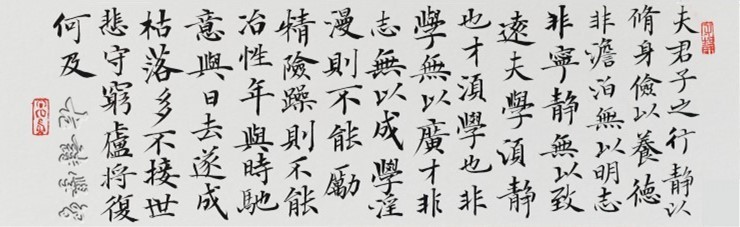 夫君子之行靜以
脩身儉以養德
非澹泊無以明志
非寧靜無以致
遠夫學湏靜
也才湏學也非
學無以廣才非
志無以成學淫
漫則不能勵
精險躁則不能
冶性年與時馳
意與日去遂成
枯落多不接世
悲守窮廬將復
何及